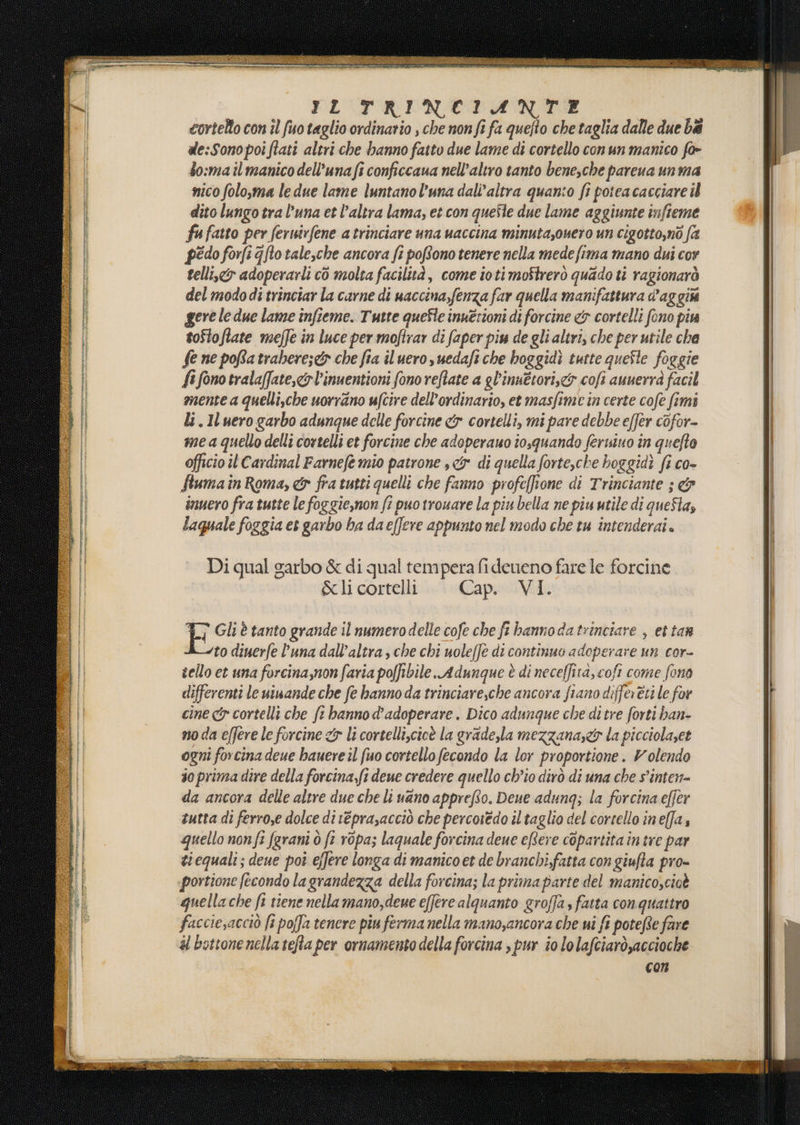 IL TRINCIANTE
cortello con il ſuo taglio ordinario, che non ſi fa queſto che taglia dalle due bā
de: Sono poi ſtati altri che hanno fatto due lame di cortello con un manico ſo-
lo: ma il manico dell'una ſi conficcaua nell'altro tanto bene, che pareua un ma
nico ſolo, ma le due lame luntano l'una dall'altra quanto ſi potea cacciare il
dito lungo tra l'una et l'altra lama, et con queſte due lame aggiunte inſieme
fu fatto per ſeruirſene a trinciare una uaccina minuta, ouero un cigotto, nō ſa
pēdo forſi q̄ſto tale, che ancora ſi poſſono tenere nella medeſima mano dui cor
telli, & adoperarli cō molta facilità, come io ti moſtrerò quādo ti ragionarò
del modo di trinciar la carne di uaccina, ſenza far quella manifattura d'aggiū
gere le due lame inſieme. Tutte queſte inuētioni di forcine & cortelli ſono piu
toſto ſtate meſſe in luce per moſtrar di ſaper piu de gli altri, che per utile che
ſe ne poſſa trahere; & che ſia il uero, uedaſi che hoggidì tutte queſte foggie
ſi ſono tralaſſate, & l'inuentioni ſono reſtate a gl'inuētori, & coſi auuerrà facil
mente a quelli, che uorrāno uſcire dell'ordinario, et maſſime in certe coſe ſimi
li. Il uero garbo adunque delle forcine & cortelli, mi pare debbe eſſer cōfor-
me a quello delli cortelli et forcine che adoperauo io, quando ſeruiuo in queſto
officio il Cardinal Farneſe mio patrone, & di quella ſorte, che hoggidì ſi co-
ſtuma in Roma, & fra tutti quelli che fanno profeſſione di Trinciante; &
inuero fra tutte le foggie, non ſi puo trouare la piu bella ne piu utile di queſta,
laquale foggia et garbo ha da eſſere appunto nel modo che tu intenderai.
Di qual garbo & di qual tempera ſi deueno fare le forcine
& li cortelli Cap. VI.
EGli è tanto grande il numero delle coſe che ſi hanno da trinciare, et tan
to diuerſe l'una dall'altra, che chi uoleſſe di continuo adoperare un cor-
tello et una forcina, non ſaria poſſibile. Adunque è di neceſſità, coſi come ſono
differenti le uiuande che ſe hanno da trinciare, che ancora ſiano differēti le for
cine & cortelli che ſi hanno d'adoperare. Dico adunque che di tre ſorti han-
no da eſſere le forcine & li cortelli, cioè la grāde, la mezzana, & la picciola, et
ogni forcina deue hauere il ſuo cortello ſecondo la lor proportione. Volendo
io prima dire della forcina, ſi deue credere quello ch'io dirò di una che s'inten-
da ancora delle altre due che li uāno appreſſo. Deue adunq; la forcina eſſer
tutta di ferro, e dolce di tēpra, acciò che percotēdo il taglio del cortello in eſſa,
quello non ſi ſgrani ò ſi rōpa; laquale forcina deue eſſere cōpartita in tre par
ti equali; deue poi eſſere longa di manico et de branchi, fatta con giuſta pro-
portione ſecondo la grandezza della forcina; la prima parte del manico, cioè
quella che ſi tiene nella mano, deue eſſere alquanto groſſa, fatta con quattro
faccie, acciò ſi poſſa tenere piu ferma nella mano, ancora che ui ſi poteſſe fare
il bottone nella teſta per ornamento della forcina, pur io lo laſciarò, accioche
con